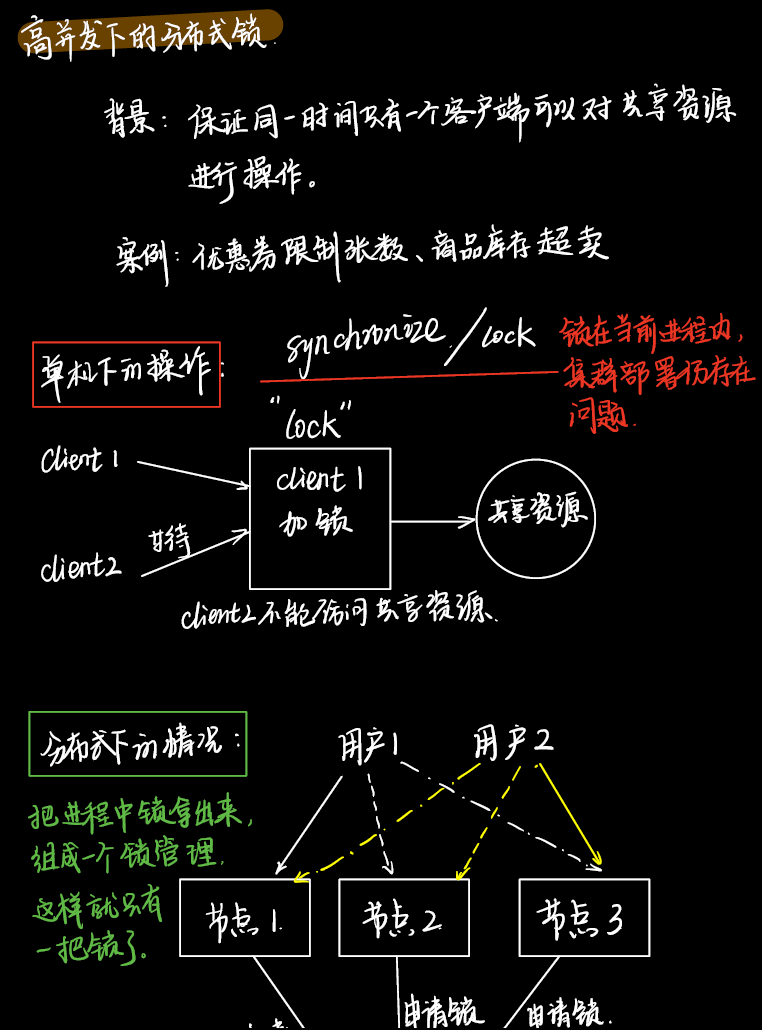 高并发下的分布式锁.
背景：保证同一时间只有一个客户端可以对共享资源
进行操作。
案例：优惠券限制张数、商品库存超卖
单机下的操作：
synchronize/lock
锁在当前进程内，
集群部署仍存在
问题.
"lock"
client 1
client 2
等待
client 1
加锁
共享资源
client 2 不能访问共享资源.
分布式下的情况：
用户1
用户2
把进程中锁拿出来，
组成一个锁管理.
这样就只有
一把锁了。
节点1.
节点2
节点3
申请锁
申请锁.